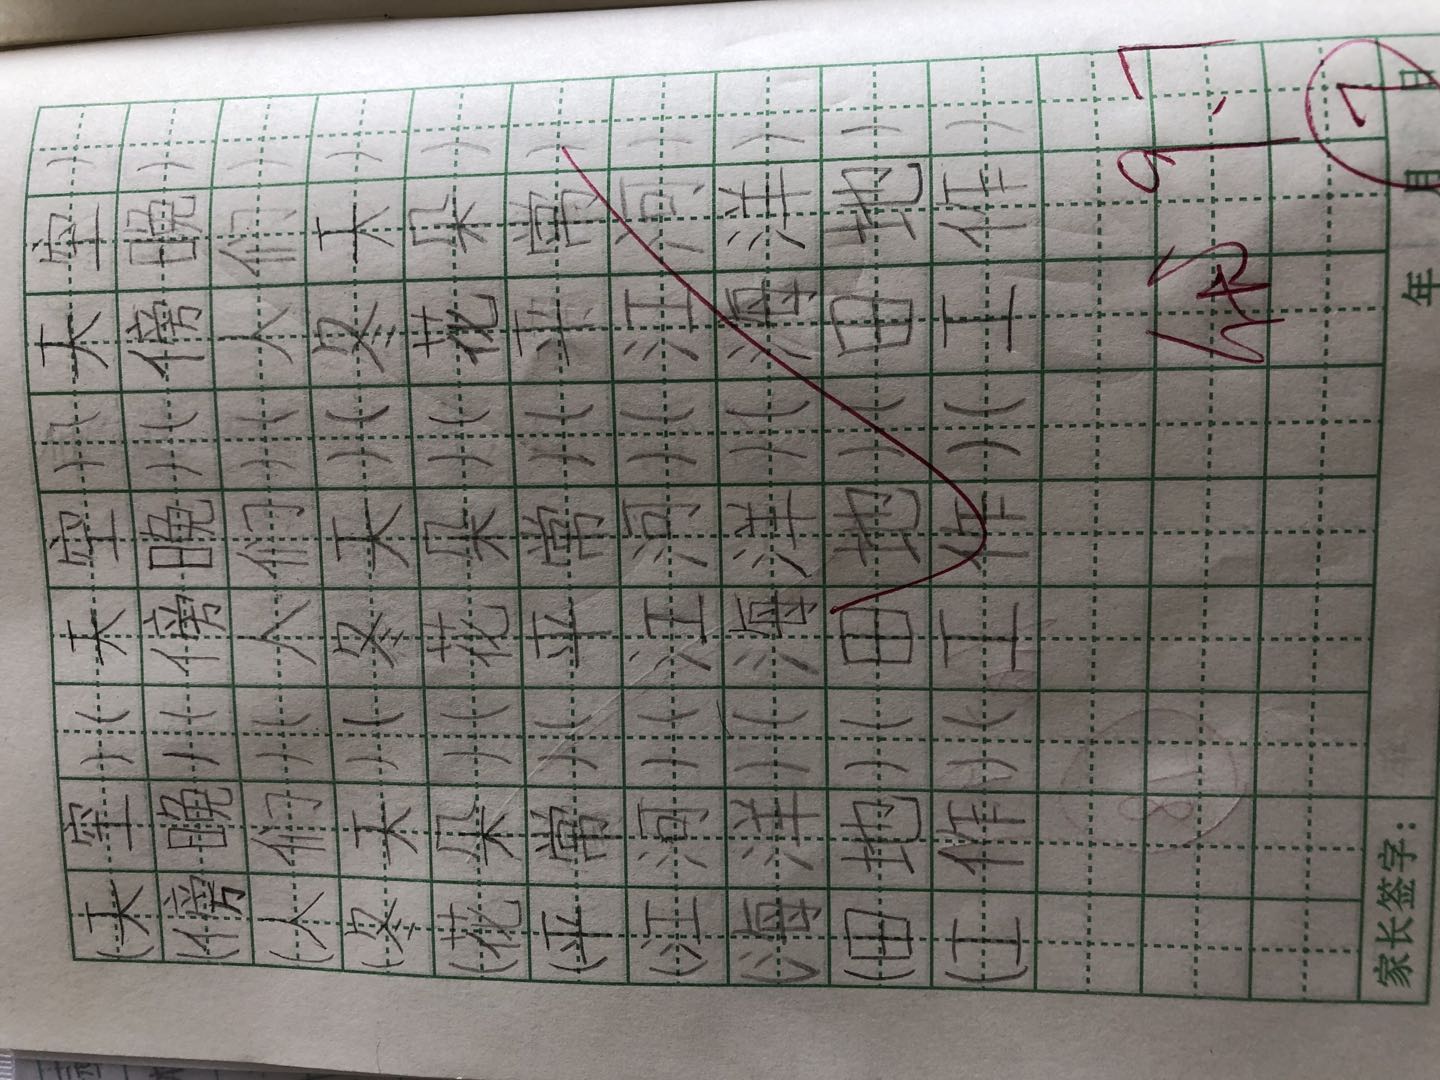 (天空)(天空)(天空)
(傍晚)(傍晚)(傍晚)
(人们)(人们)(人们)
(冬天)(冬天)(冬天)
(花朵)(花朵)(花朵)
(平常)(平常)(平常)
(江河)(江河)(江河)
(海洋)(海洋)(海洋)
(田地)(田地)(田地)
(工作)(工作)(工作)
9.7
家长签字: 年 月 日